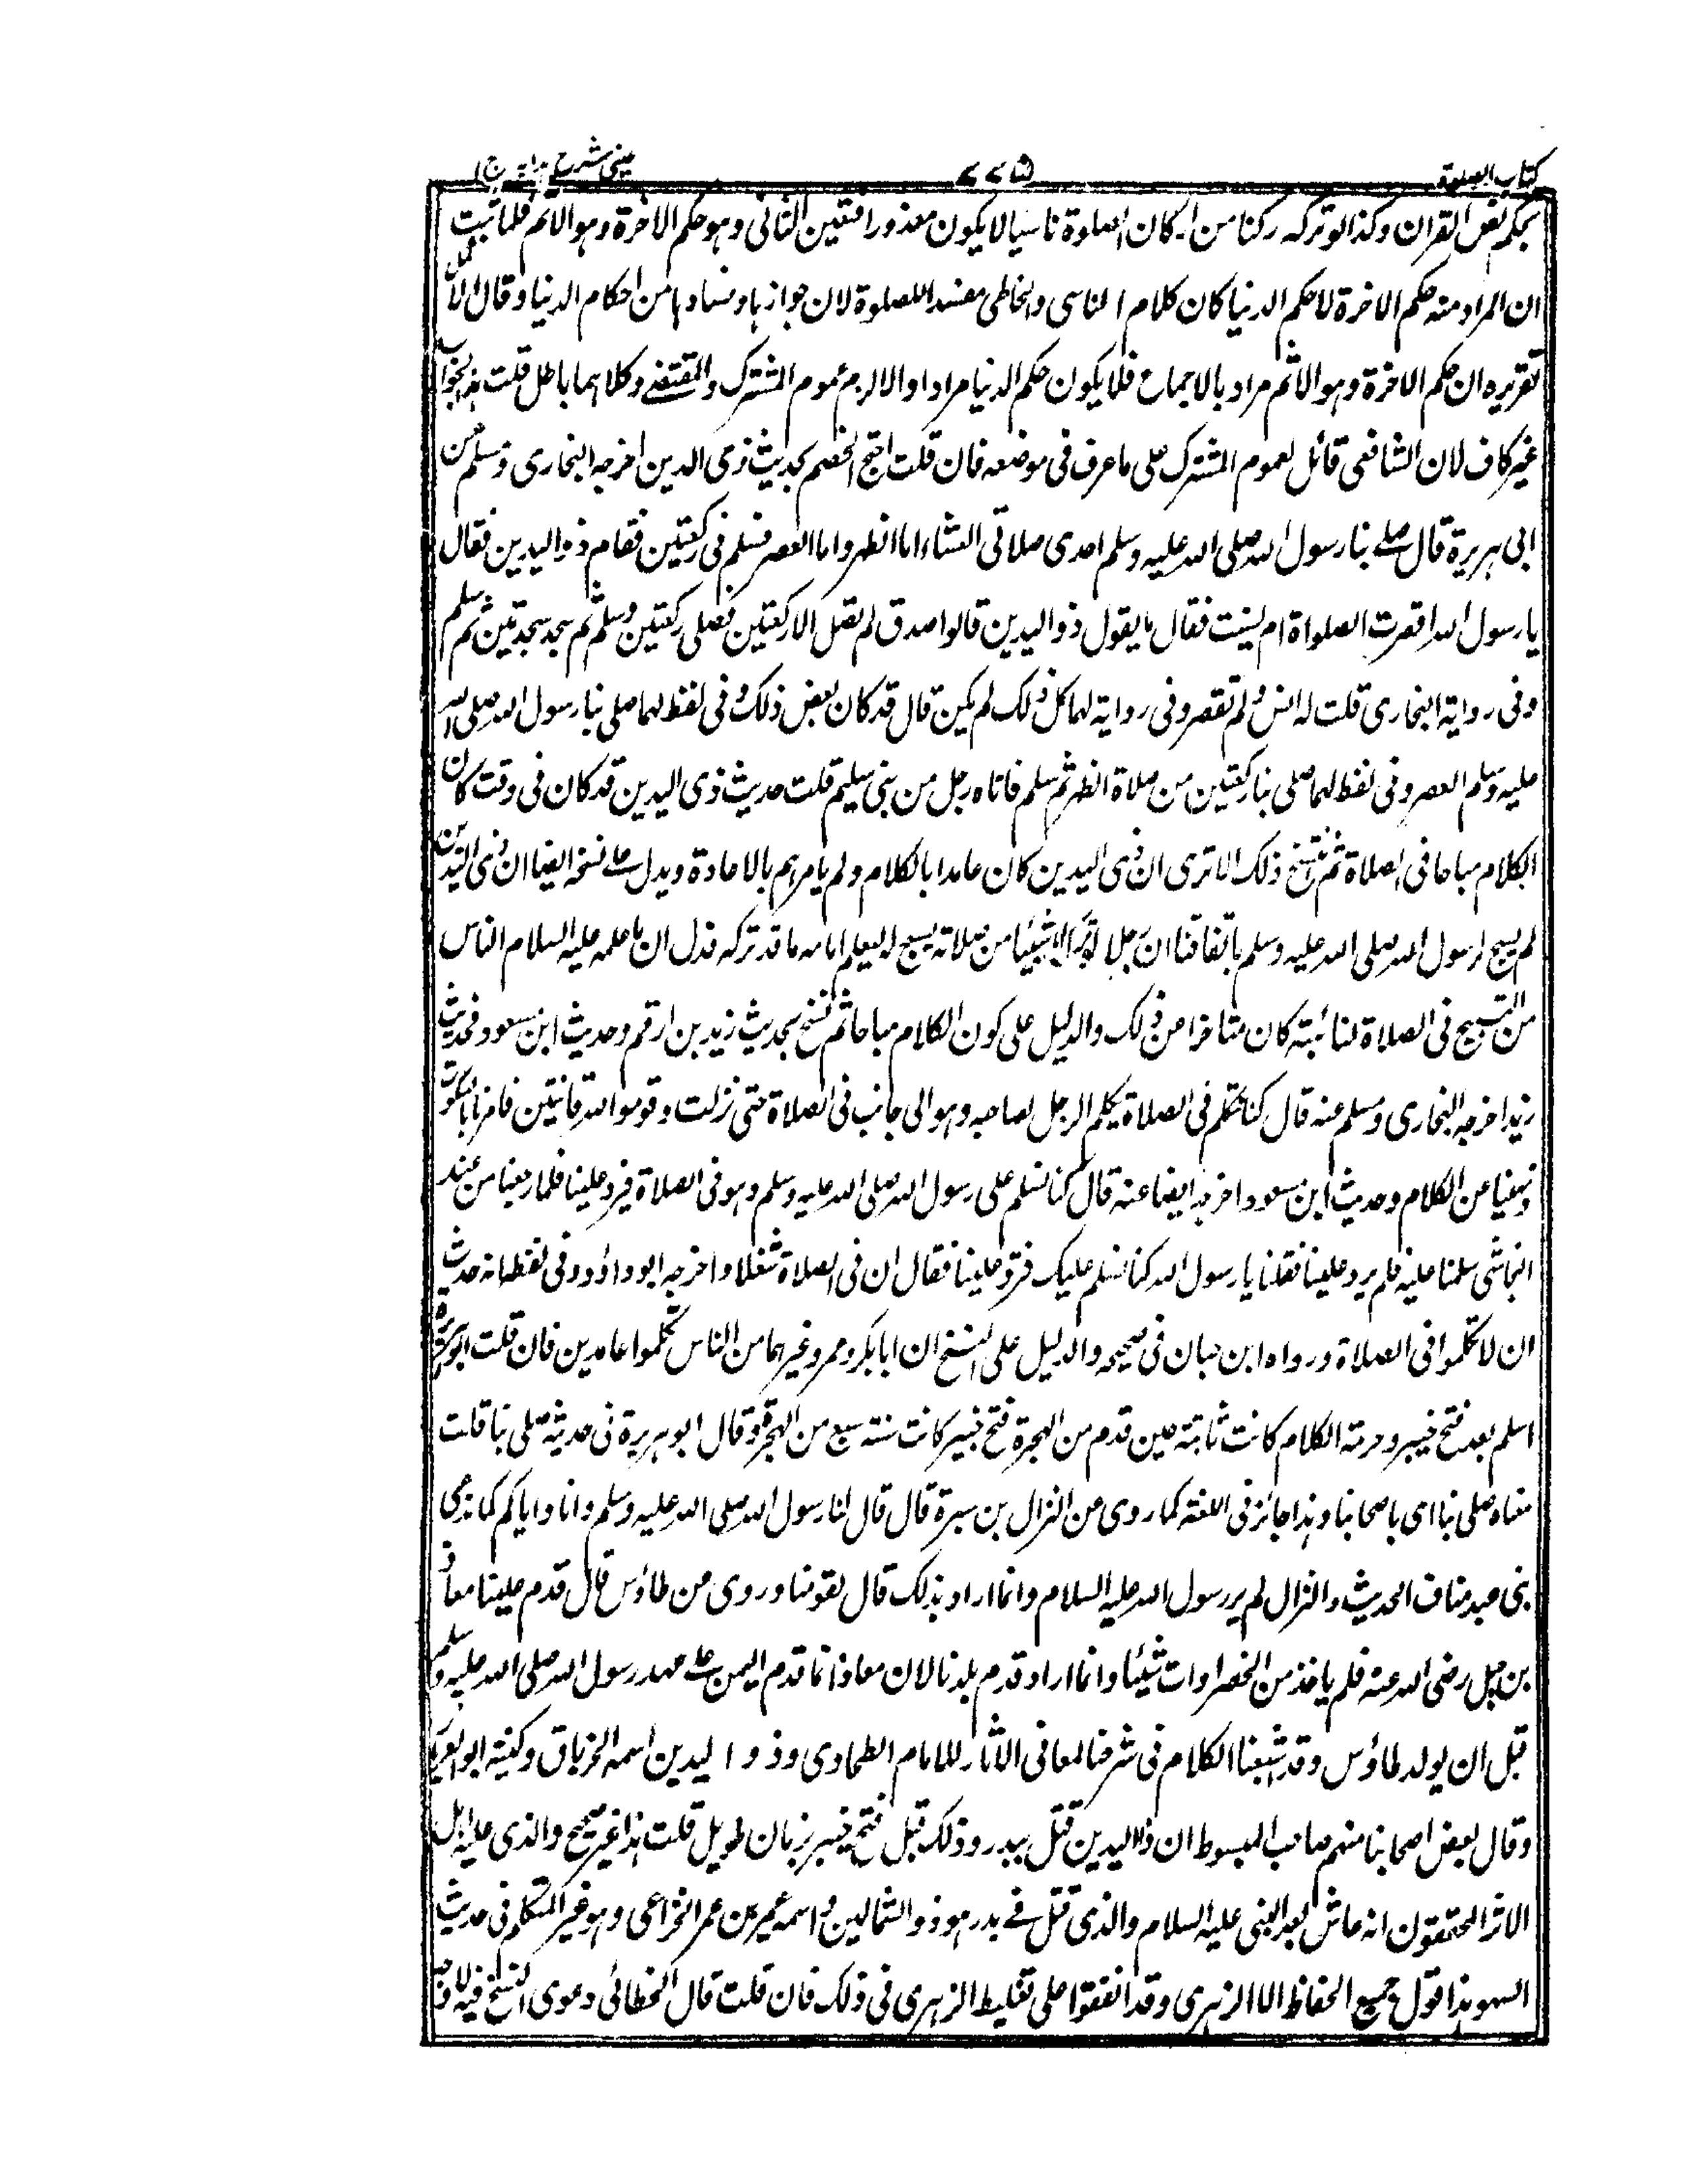 كتاب الصلوة ٧٧٥ عینی شرح ہدایہ ج ١
بحكم نص القران وكذا لو ترك ركنا من اركان الصلوة ناسيا لا يكون معذورا فتعين الثانى وهو حكم الاخرة وهو الاثم فلما ثبت
ان المراد منه حكم الاخرة لا حكم الدنيا كان كلام الناسى والخاطى مفسدا للصلوة لان جوازها وفسادها من احكام الدنيا وقال الاكمل
تقريره ان حكم الاخرة وهو الاثم مراد بالاجماع فلا يكون حكم الدنيا مرادا والا لزم عموم المشترك والمقتضے وكلاهما باطل قلت هذا الجواب
غير كاف لان الشافعى قائل لعموم المشترك على ما عرف فى موضعه فان قلت احتج الخصم بحديث ذى الدين اخرجه البخارى ومسلم عن
ابى هريرة قال صلے بنا رسول الله صلى الله عليه وسلم احدى صلاتى العشاء اما الظهر واما العصر فسلم فى ركعتين فقام ذو اليدين فقال
يا رسول الله اقصرت الصلواة ام نسيت فقال ما يقول ذو اليدين قالوا صدق لم تصل الا ركعتين فصلى ركعتين وسلم ثم سجد سجدتين ثم سلم
وفى رواية البخارى قلت له انس ولم تقصر وفى رواية لهما كل ذلك لم يكن قال قد كان بعض ذلك وفى لفظ لهما صلى بنا رسول الله صلى الله
عليه وسلم العصر وفى لفظ لهما صلى بنا ركعتين من صلاة الظهر ثم سلم فاتاه رجل من بنى سليم قلت حديث ذى اليدين قد كان فى وقت كان
الكلام مباحا فى الصلاة ثم نسخ ذلك الا ترى ان ذى اليدين كان عامدا بالكلام ولم يامرهم بالاعادة ويدل علے نسخه ايضا ان ذى اليدين
لم يسبح لرسول الله صلى الله عليه وسلم باتفاقنا ان رجلا لو ترك شيئا من صلاته يسبح له ليعلم امامه ما قد تركه فدل ان ما علمه عليه السلام الناس
من التسبيح فى الصلاة لنائبته كان متاخرا من ذلك والدليل على كون الكلام مباحا ثم نسخ بحديث زيد بن ارقم وحديث ابن مسعود فحديث
زيد اخرجه البخارى ومسلم عنه قال كنا نتكلم فى الصلاة يكلم الرجل لصاحبه وهو الى جانب فى الصلاة حتى نزلت وقوموا لله قانتين فامرنا بالسكوت
ونهينا عن الكلام وحديث ابن مسعود اخرجه ايضا عنه قال كنا نسلم على رسول الله صلى الله عليه وسلم وهو فى الصلاة فيرد علينا فلما رجعنا من عند
النجاشى سلمنا عليه فلم يرد علينا فقلنا يا رسول الله كنا نسلم عليك فترد علينا فقال ان فى الصلاة شغلا واخرجه ابو داؤد وفى لفظ انه حدث
ان لا تكلموا فى الصلاة ورواه ابن حبان فى صحيحه والدليل على النسخ ان ابا بكر وعمر وغيرهما من الناس تكلموا عامدين فان قلت ابو هريرة
اسلم بعد فتح خيبر وحرمة الكلام كانت ثابتة حين قدم من الهجرة فتح خيبر كانت سنة سبع من الهجرة وقال ابو هريرة فى حديثه صلى بنا قلت
معناه صلى بنا اى باصحابنا وهذا جائز فى اللغة كما روى من النزال بن سبرة قال قال لنا رسول الله صلى الله عليه وسلم وانا واياكم كما ندعى
بنى عبد مناف الحديث والنزال لم ير رسول الله عليه السلام وانما اراد بذلك قال لقومنا وروى من طاؤس قال قدم علينا معاذ
بن جبل رضى الله عنه فلم ياخذ من الخضراوات شيئا وانما اراد قدم بلدنا لان معاذا انما قدم اليمن علے عهد رسول الله صلى الله عليه وسلم
قبل ان يولد طاؤس وقد اشبعنا الكلام فى شرحنا لمعانى الاثار للامام الطحاوى وذو اليدين اسمه الخرباق وكنيته ابو العريان
وقال بعض اصحابنا منهم صاحب المبسوط ان ذا اليدين قتل ببدر وذلك قبل فتح خيبر بزمان طويل قلت هذا غير صحيح والذى عليه اهل
الاثر المحققون انه عاش بعد النبى عليه السلام والذى قتل فے بدر هو ذو الشمالين واسمه عمير بن عمر الخزاعى وهو غير المتكلم فى حديث
السهو هذا قول جميع الحفاظ الا الزهرى وقد اتفقوا على تغليط الزهرى فى ذلك فان قلت قال الخطابى دعوى النسخ فيه لا وجه